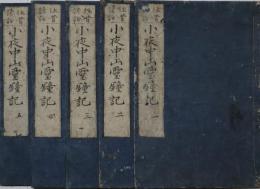 小夜中山靈鐘記 一
小夜中山靈鐘記 二
小夜中山靈鐘記 三
小夜中山靈鐘記 四
小夜中山靈鐘記 五